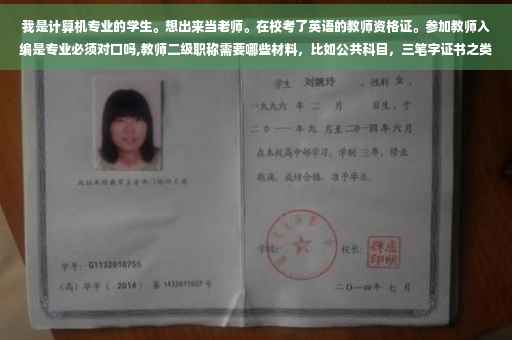 我是计算机专业的学生。想出来当老师。在校考了英语的教师资格证。参加教师入
编是专业必须对口吗,教师二级职称需要哪些材料，比如公共科目，三笔字证书之类
学生 刘婉玲 ，性别 女 ，
一九九六 年 二 月 日生，于
二〇一一年九 月至二〇一四年六月
在本校高中部学习，学制三年，修业
期满，成绩合格，准予毕业。
学号：G1132010755
(高)毕字(2014)第1432011007号
学校：
校长：
二〇一四年 七 月